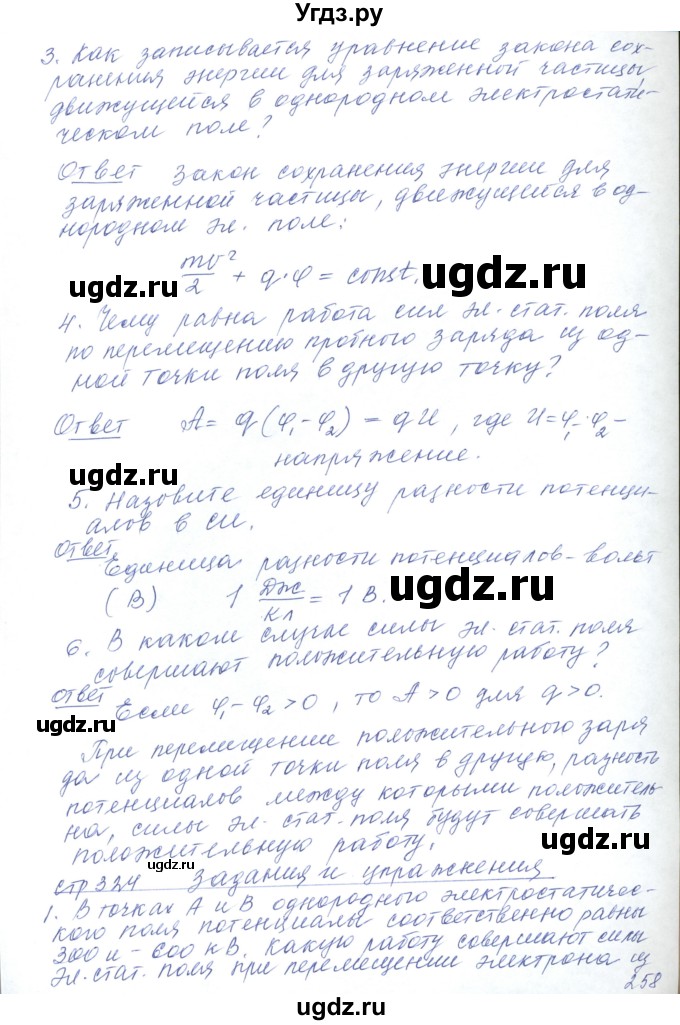 Угдз.ру
3. Как записывается уравнение закона сох-
ранения энергии для заряженной частицы,
движущейся в однородном электростати-
ческом поле?
Ответ Закон сохранения энергии для
заряженной частицы, движущейся в од-
нородном эл. поле:
mv²/2 + q·φ = const.
ugdz.ru ugdz.ru
4. Чему равна работа сил эл. стат. поля
по перемещению пробного заряда из од-
ной точки поля в другую точку?
Ответ A = q(φ₁-φ₂) = qU, где U=φ₁-φ₂ –
напряжение.
ugdz.ru
5. Назовите единицу разности потенци-
алов в СИ.
Ответ
Единица разности потенциалов - вольт
(В) 1 Дж/Кл = 1 В.
ugdz.ru
6. В каком случае силы эл. стат. поля
совершают положительную работу?
Ответ Если φ₁-φ₂>0, то A>0 для q>0.
ugdz.ru
При перемещении положительного заря
да из одной точки поля в другую, разность
потенциалов между которыми положитель-
на, силы эл. стат. поля будут совершать
ugdz.ru
положительную работу.
ugdz.ru
стр 324 Задания и упражнения
1. В точках А и В однородного электростатичес-
кого поля потенциалы соответственно равны
300 и -600 кВ. Какую работу совершают силы
эл. стат. поля при перемещении электрона из
ugdz.ru ugdz.ru
258
ugdz.ru